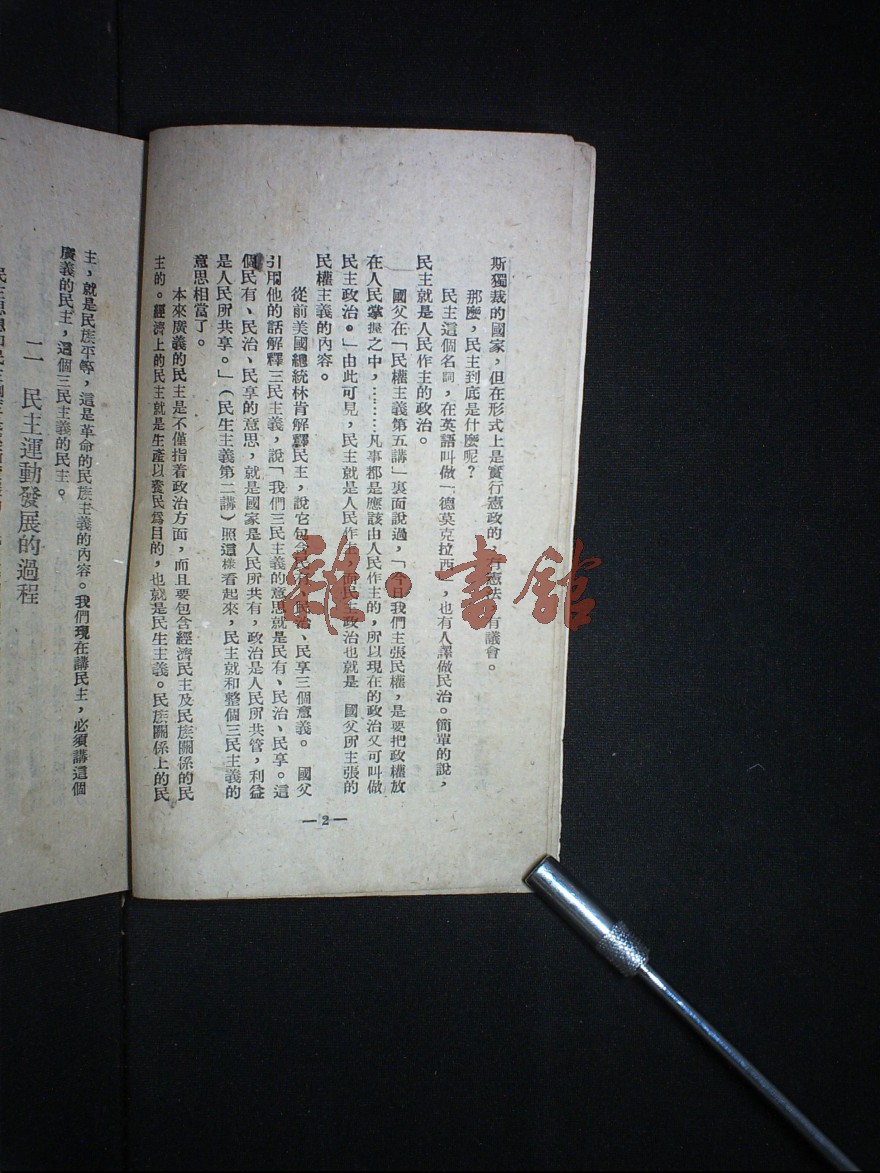 斯獨裁的國家，但在形式上是實行憲政的，有憲法，有議會。
那麼，民主到底是什麼呢？
民主這個名詞，在英語叫做「德莫克拉西」，也有人譯做民治。簡單的說，
民主就是人民作主的政治。
國父在「民權主義第五講」裏面說過，「今日我們主張民權，是要把政權放
在人民掌握之中，………凡事都是應該由人民作主的，所以現在的政治又可叫做
民主政治。」由此可見，民主就是人民作主，而民主政治也就是　國父所主張的
民權主義的內容。
從前美國總統林肯解釋民主，說它包含民有、民治、民享三個意義。　國父
引用他的話解釋三民主義，說「我們三民主義的意思就是民有、民治、民享。這
個民有、民治、民享的意思，就是國家是人民所共有，政治是人民所共管，利益
是人民所共享。」（民生主義第二講）照這樣看起來，民主就和整個三民主義的
意思相當了。
本來廣義的民主是不僅指着政治方面，而且要包含經濟民主及民族關係的民
主的。經濟上的民主就是生產以養民爲目的，也就是民生主義。民族關係上的民
—2—
主，就是民族平等，這是革命的民族主義的內容。我們現在講民主，必須講這個
廣義的民主，這個三民主義的民主。
二　民主運動發展的過程
雜·書館